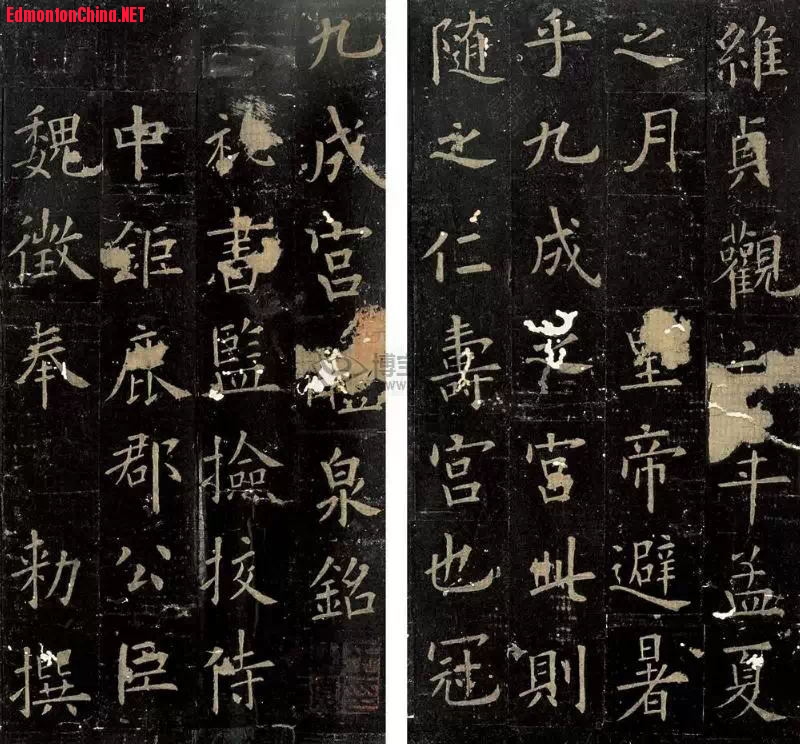 EdmontonChina.NET
九成宮醴泉銘
祕書監撿挍侍
中鉅鹿郡公臣
魏徵奉 勑撰
維貞觀六年孟夏
之月 皇帝避暑
乎九成之宮此則
隨之仁壽宮也冠